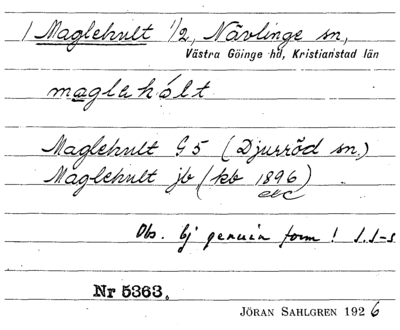 1 Maglehult 1/2, Nävlinge sn,
Västra Göinge hd, Kristianstad län
maglahólt
Maglehult G5 (Djurröd sn.)
Maglehult jb (kb 1896)
etc
Obs. Ej genuin form! J.S-s
Nr 5363.
JÖRAN SAHLGREN 1926